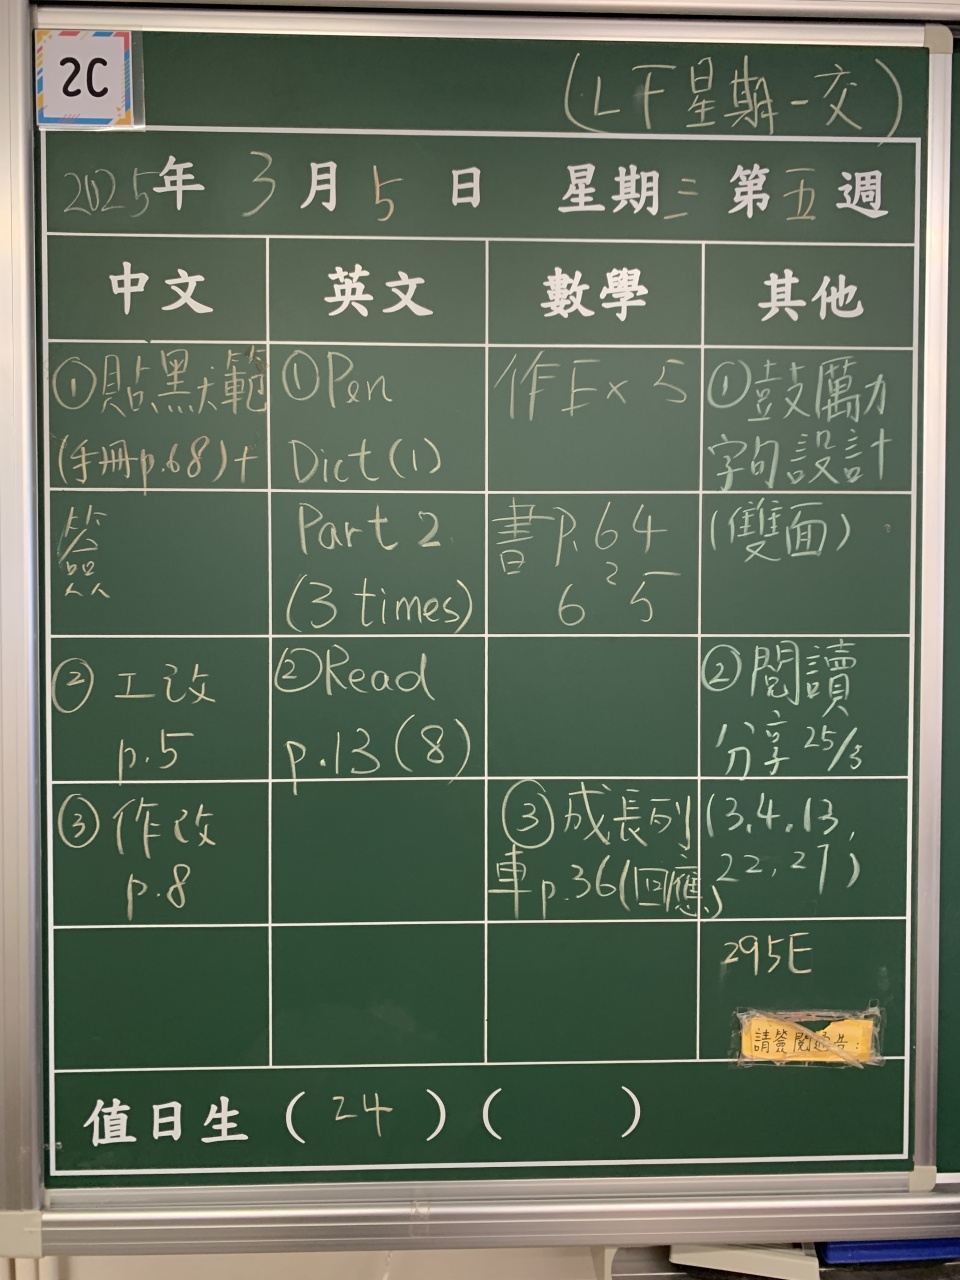 2C
(L下星期一交)
2025年 3月5日 星期三 第五週
中文 英文 數學 其他
①貼默範
(手冊p.68)+
簽
②工改
p.5
③作改
p.8
①Pen
Dict(1)
Part 2
(3 times)
②Read
p.13(8)
作Ex 5
書p.64
65
③成長列
車p.36(回應)
①鼓勵
字句設計
(雙面)
②閱讀
分享25/3
(3,4,13,
22,27)
295E
請簽閱通告:
值日生 (24) ( )